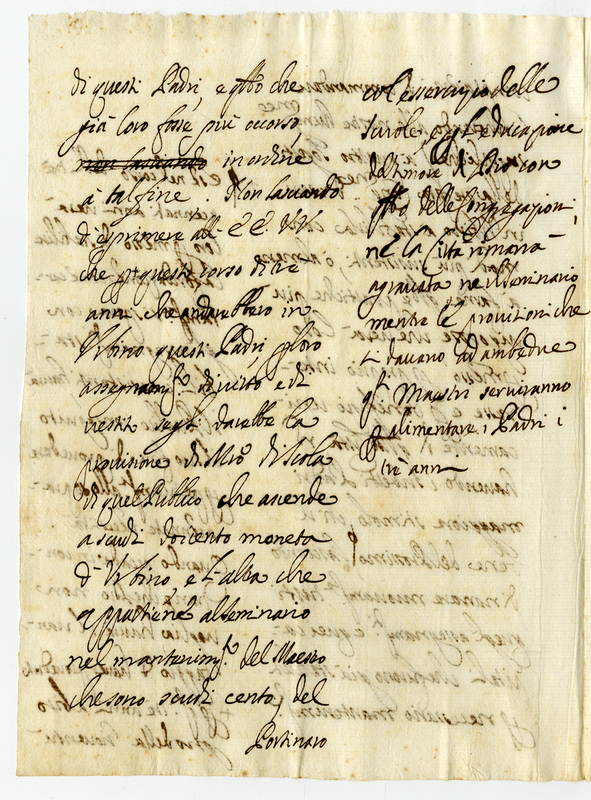 di questi Padri, e q.to che
già loro fosse più occorso,
non lasciando in ordine
à tal fine. Non lasciando
d'esprimere all' EE. VV.
che p questo corso di tre
anni che andarebbero in
Urbino questi Padri, p loro
assegnam.to di vitto, e di
vestito segli darebbe la
provisione di Mro di Scola
di quel Publico che ascende
a scudi doicento moneta
d'Urbino, e l'altra che
appartiene al Seminario
nel mantenim.to del Maestro
che sono scudi cento, del
Portinaro
col essercizio delle
Scuole, e gl'educazione
del timore di Dio con
delle Congregazioni,
nè la Città rimarrà
agravata nè il Seminario
mentre le provisioni che
si davano ad ambedue
q.ti Maestri serviranno
alimentare i Padri i
trè anni